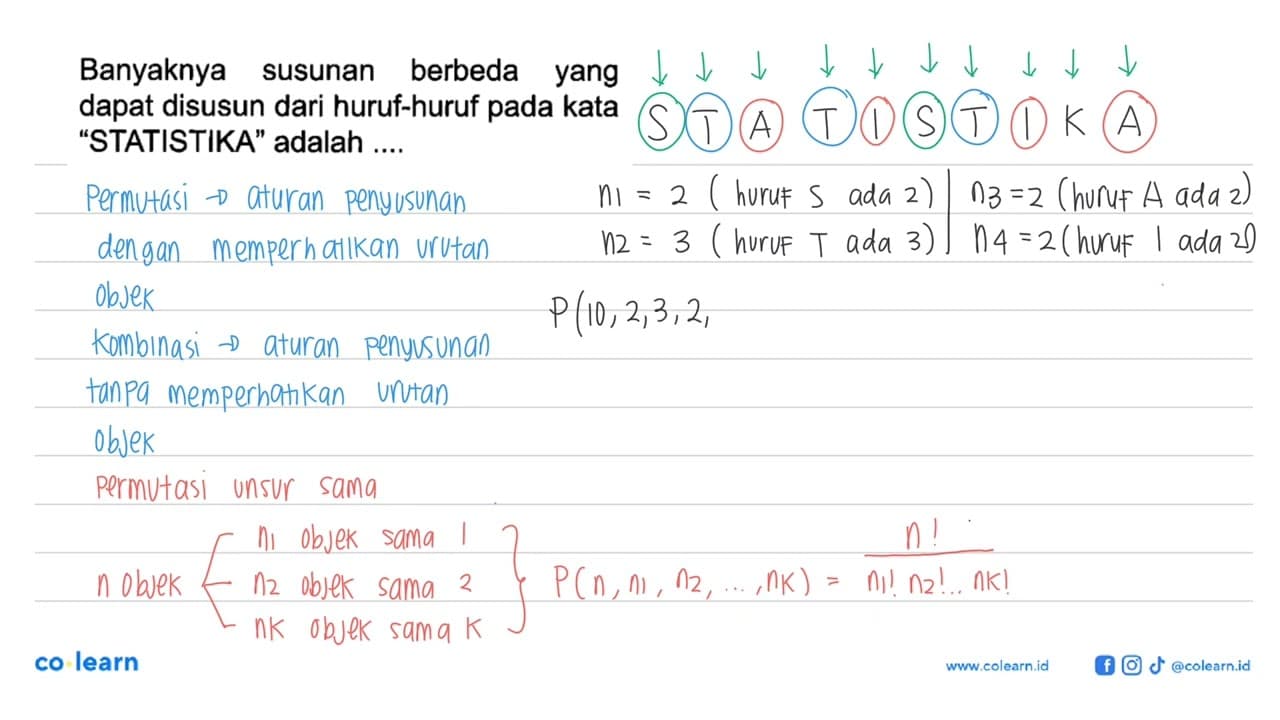 Banyaknya susunan berbeda yang
dapat disusun dari huruf-huruf pada kata
“STATISTIKA” adalah ....
S T A T I S T I K A
Permutasi → aturan penyusunan
dengan memperhatikan urutan
objek
kombinasi → aturan penyusunan
tanpa memperhatikan urutan
objek
n1 = 2 ( huruf S ada 2) | n3 = 2 (huruf A ada 2)
n2 = 3 ( huruf T ada 3) | n4 = 2 (huruf I ada 2)
P(10, 2, 3, 2,
Permutasi unsur sama
n objek
n1 objek sama 1
n2 objek sama 2
nk objek sama k
P(n, n1, n2, ..., nk) = n! / n1! n2! .. nk!
co learn
www.colearn.id
@colearn.id